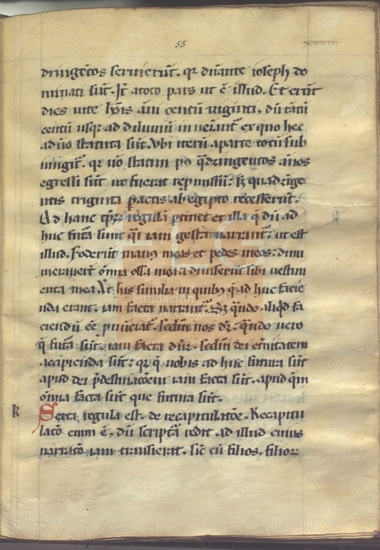 55
dringẽtos seruierũt. qr dũante ioseph do
minati sũt. Jt̃ a toto pars ut ẽ illud. Et erũt
dies uite hõis ãni centũ uiginti. dũ tãtũ
centũ usqȝ ad diluuiũ inueiant᷑ ex quo hec
a dño statuta sũt. Vbi iterũ a parte totũ sub
q̃dringentos ãños
egressi sũt ut fuerat repmissũ: sȝ quadrĩge
ntis triginta pactis ab egipto recesserũt.
Ad hanc regulã ptinet et illa q̃ dũ ad
huc futa sunt qi iam gesta narrant᷑: ut est
illud. Foderũt manꝰ meas et pedes meos: dinu
merauert̃ om̃a ossa mea diuiserũt sibi uestim
enta mea. his similia in quibꝰ q̃ ad huc facie
nda erant, iam facta narrant᷑. Sȝ q̃ndo aliqd fa
ciendũ eẽ scdm̃ nos dr̃. q̃ndo uero
q̃ futa sũt, iam facta dñr. scdm̃ dei et̃nitatem
accipienda sũt: qr q̃ nobis ad huc futura sũt
apud dei p̃destinacõem iam facta sũt, apud q̃m
om̃ia facta sũt que futura sũt.
Sexta regula est. de recapitulacõe. Recapitu
lacõ enim ẽ, dũ scriptã redit ad illud cuius
narracõ iam transierit, sic cũ filios, filiorͬ